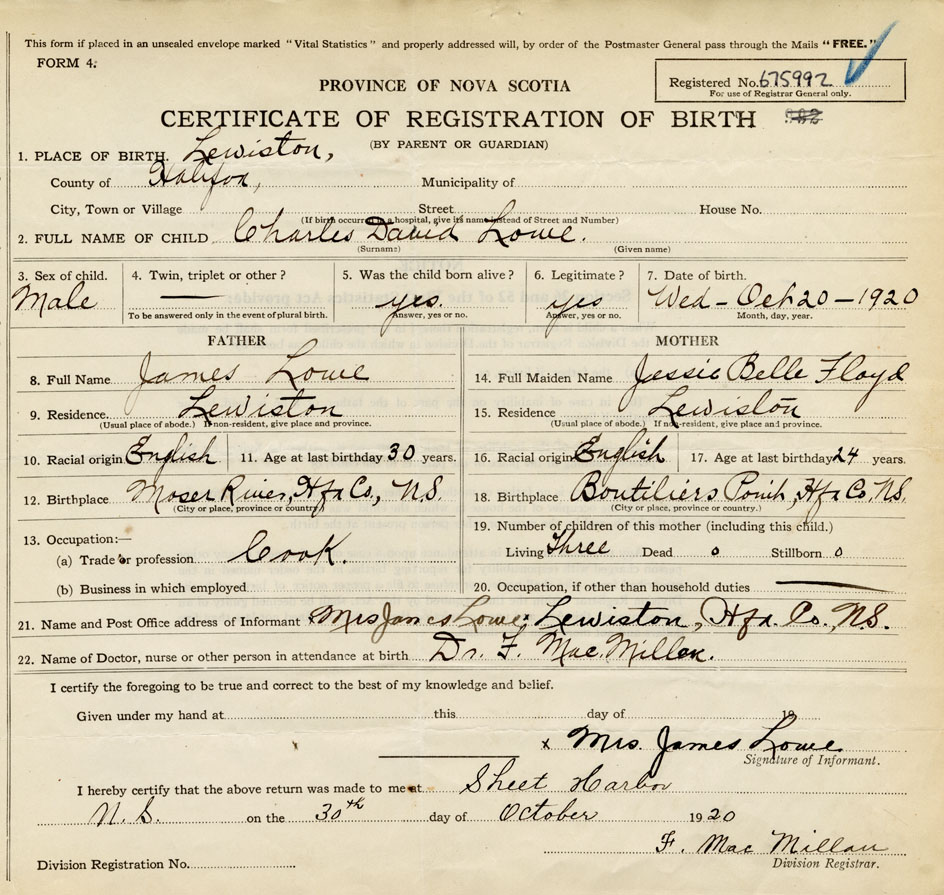 This form if placed in an unsealed envelope marked "Vital Statistics" and properly addressed will, by order of the Postmaster General pass through the Mails "FREE."
FORM 4.
PROVINCE OF NOVA SCOTIA
Registered No. 675992
For use of Registrar General only.
CERTIFICATE OF REGISTRATION OF BIRTH
(BY PARENT OR GUARDIAN)
1. PLACE OF BIRTH. Lewiston,
County of Halifax, Municipality of
City, Town or Village Street House No.
(If birth occurred in a hospital, give its name instead of Street and Number)
2. FULL NAME OF CHILD Charles David Lowe.
(Surname) (Given name)
3. Sex of child. 4. Twin, triplet or other? 5. Was the child born alive? 6. Legitimate? 7. Date of birth.
Male — yes. yes Wed - Oct 20 - 1920
To be answered only in the event of plural birth. Answer, yes or no. Answer, yes or no. Month, day, year.
FATHER
8. Full Name James Lowe
9. Residence. Lewiston
(Usual place of abode.) If non-resident, give place and province.
10. Racial origin English 11. Age at last birthday 30 years.
12. Birthplace Moser River, Hfx Co, N.S.
(City or place, province or country)
13. Occupation:—
(a) Trade or profession Cook.
(b) Business in which employed
MOTHER
14. Full Maiden Name Jessie Belle Floyd
15. Residence Lewiston
(Usual place of abode.) If non-resident, give place and province.
16. Racial origin English 17. Age at last birthday 24 years.
18. Birthplace Boutiliers Point, Hfx Co, N.S.
(City or place, province or country.)
19. Number of children of this mother (including this child.)
Living Three Dead 0 Stillborn 0
20. Occupation, if other than household duties —
21. Name and Post Office address of Informant Mrs James Lowe, Lewiston, Hfx. Co., N.S.
22. Name of Doctor, nurse or other person in attendance at birth Dr. F. MacMillan.
I certify the foregoing to be true and correct to the best of my knowledge and belief.
Given under my hand at this day of 19
x Mrs. James Lowe
Signature of Informant.
I hereby certify that the above return was made to me at Sheet Harbor
N.S. on the 30th day of October 1920
F. MacMillan
Division Registration No. Division Registrar.